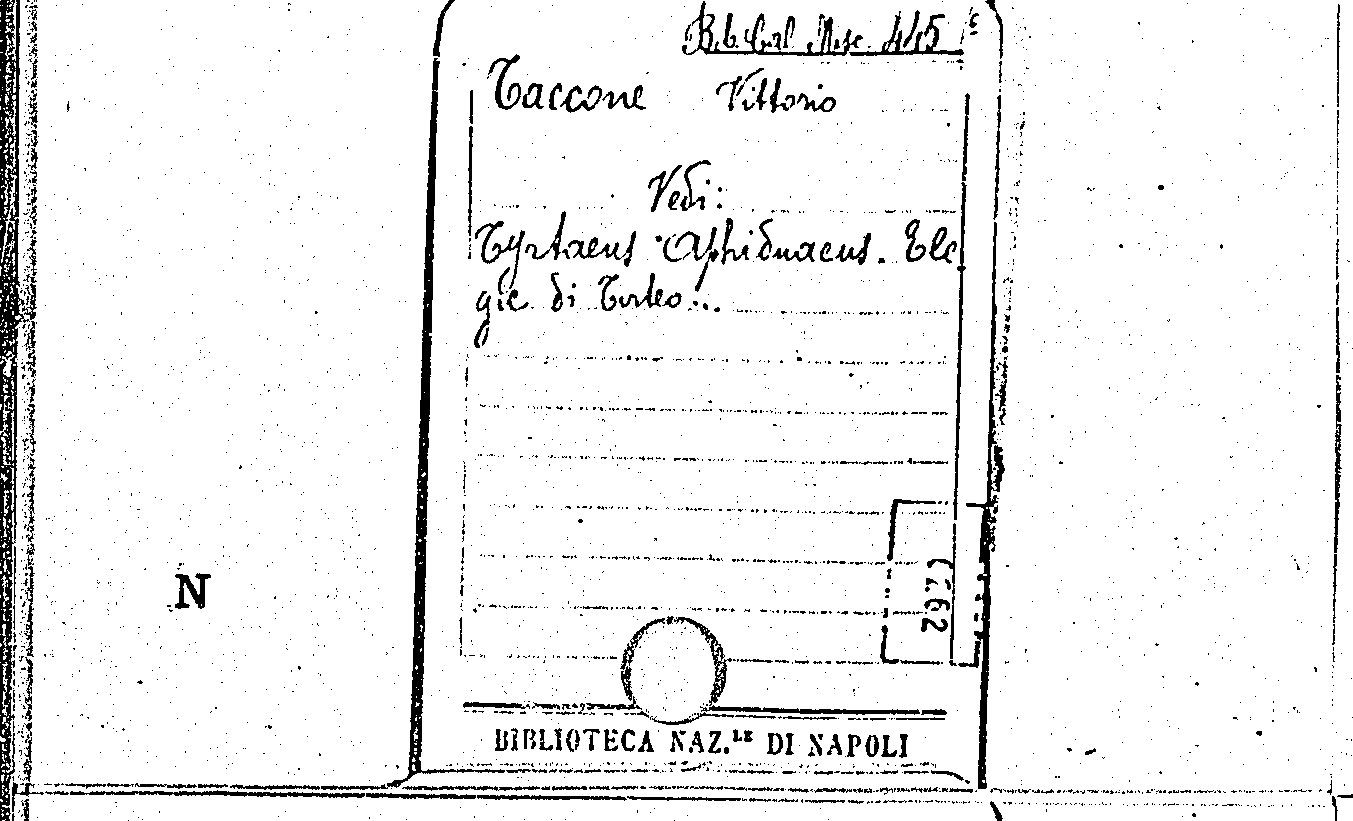 Taccone Vittorio
Vedi:
Tyrtaeus Aphidnaeus. Ele
gie di Tirteo...
N
BIBLIOTECA NAZ.LE DI NAPOLI